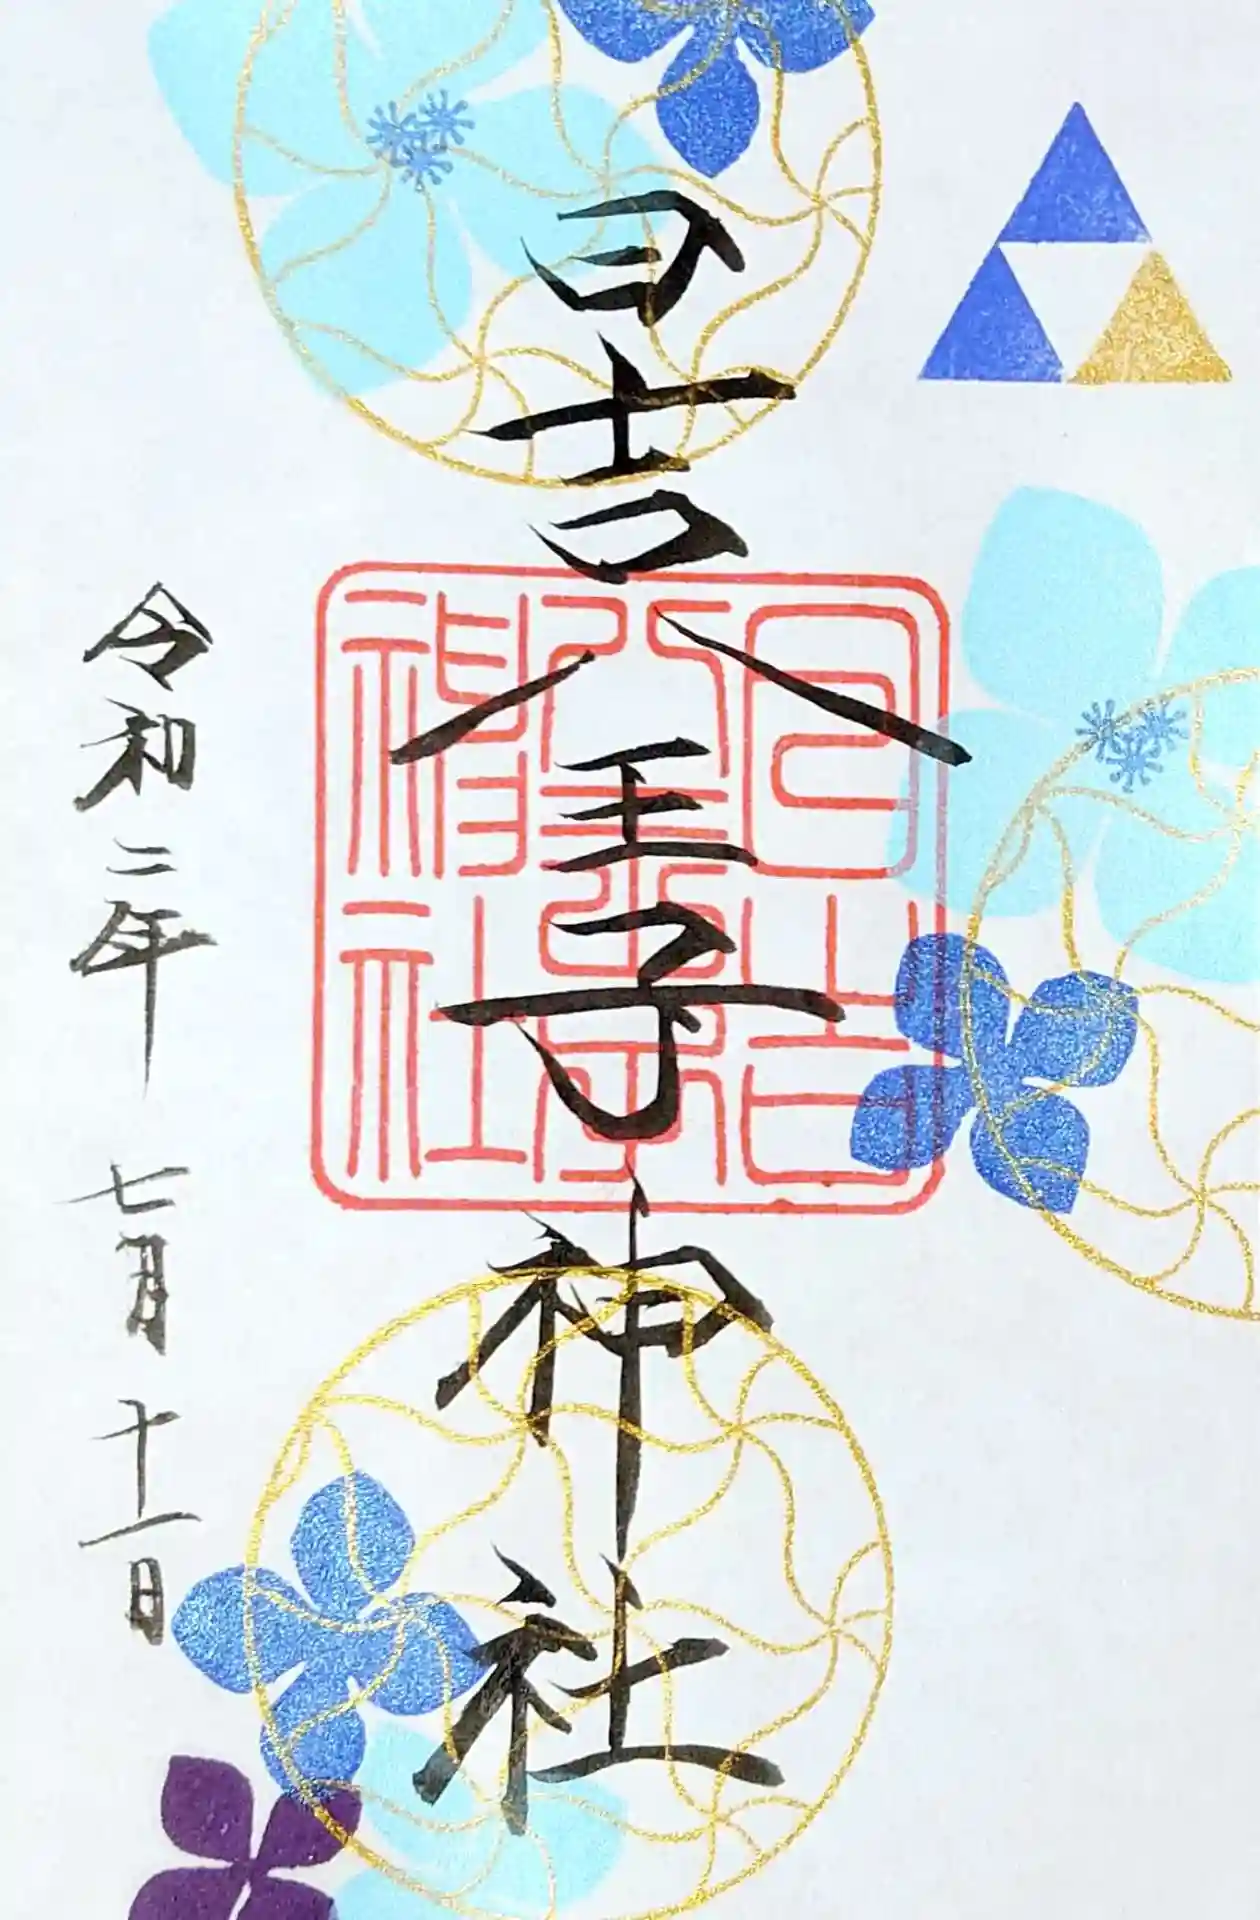 日吉八王子神社
日吉八王子神社
令和二年 七月十一日